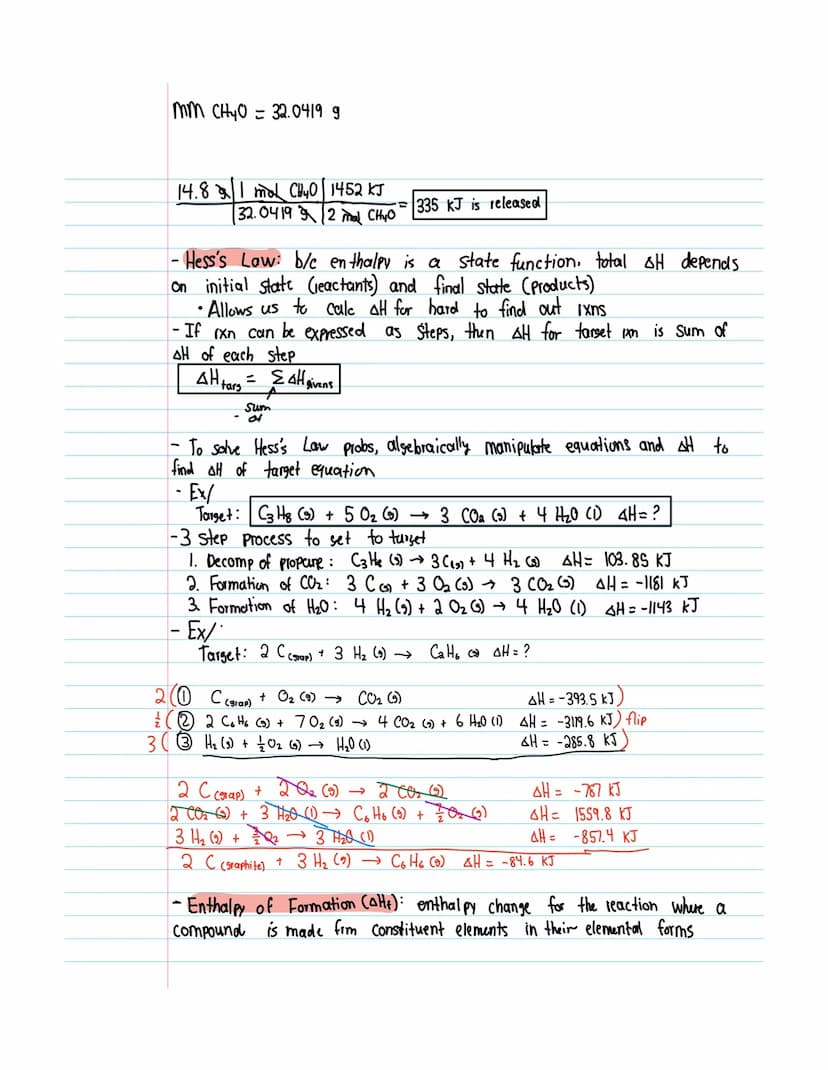 MM CH₄O = 32.0419 g
14.8 g | 1 mol CH₄O | 1452 KJ
| 32.0419 g | 2 mol CH₄O = 335 KJ is released
- Hess's Law: b/c enthalpy is a state function, total ΔH depends
on initial state (reactants) and final state (products)
• Allows us to calc ΔH for hard to find out rxns
- If rxn can be expressed as steps, then ΔH for target rxn is sum of
ΔH of each step
ΔH targ = Σ ΔH givens
- sum of
- To solve Hess's Law probs, algebraically manipulate equations and ΔH to
find ΔH of target equation
- Ex/
Target: C₃H₈ (g) + 5 O₂ (g) → 3 CO₂ (g) + 4 H₂O (l) ΔH = ?
-3 step process to get to target
1. Decomp of propane: C₃H₈ (g) → 3 C(s) + 4 H₂ (g) ΔH = 103.85 KJ
2. Formation of CO₂: 3 C(s) + 3 O₂ (g) → 3 CO₂ (g) ΔH = -1181 KJ
3. Formation of H₂O: 4 H₂ (g) + 2 O₂ (g) → 4 H₂O (l) ΔH = -1143 KJ
- Ex/
Target: 2 C (grap) + 3 H₂ (g) → C₂H₆ (g) ΔH = ?
2 ( ① C (grap) + O₂ (g) → CO₂ (g) ΔH = -393.5 KJ )
½ ( ② 2 C₂H₆ (g) + 7 O₂ (g) → 4 CO₂ (g) + 6 H₂O (l) ΔH = -3119.6 KJ ) flip
3 ( ③ H₂ (g) + ½ O₂ (g) → H₂O (l) ΔH = -285.8 KJ )
2 C (grap) + 2 O₂ (g) → 2 CO₂ (g) ΔH = -787 KJ
2 CO₂ (g) + 3 H₂O (l) → C₆H₆ (g) + 7/2 O₂ (g) ΔH = 1559.8 KJ
3 H₂ (g) + 3/2 O₂ → 3 H₂O (l) ΔH = -857.4 KJ
2 C (graphite) + 3 H₂ (g) → C₆H₆ (g) ΔH = -84.6 KJ
- Enthalpy of Formation (ΔHf): enthalpy change for the reaction where a
compound is made frm constituent elements in their elemental forms